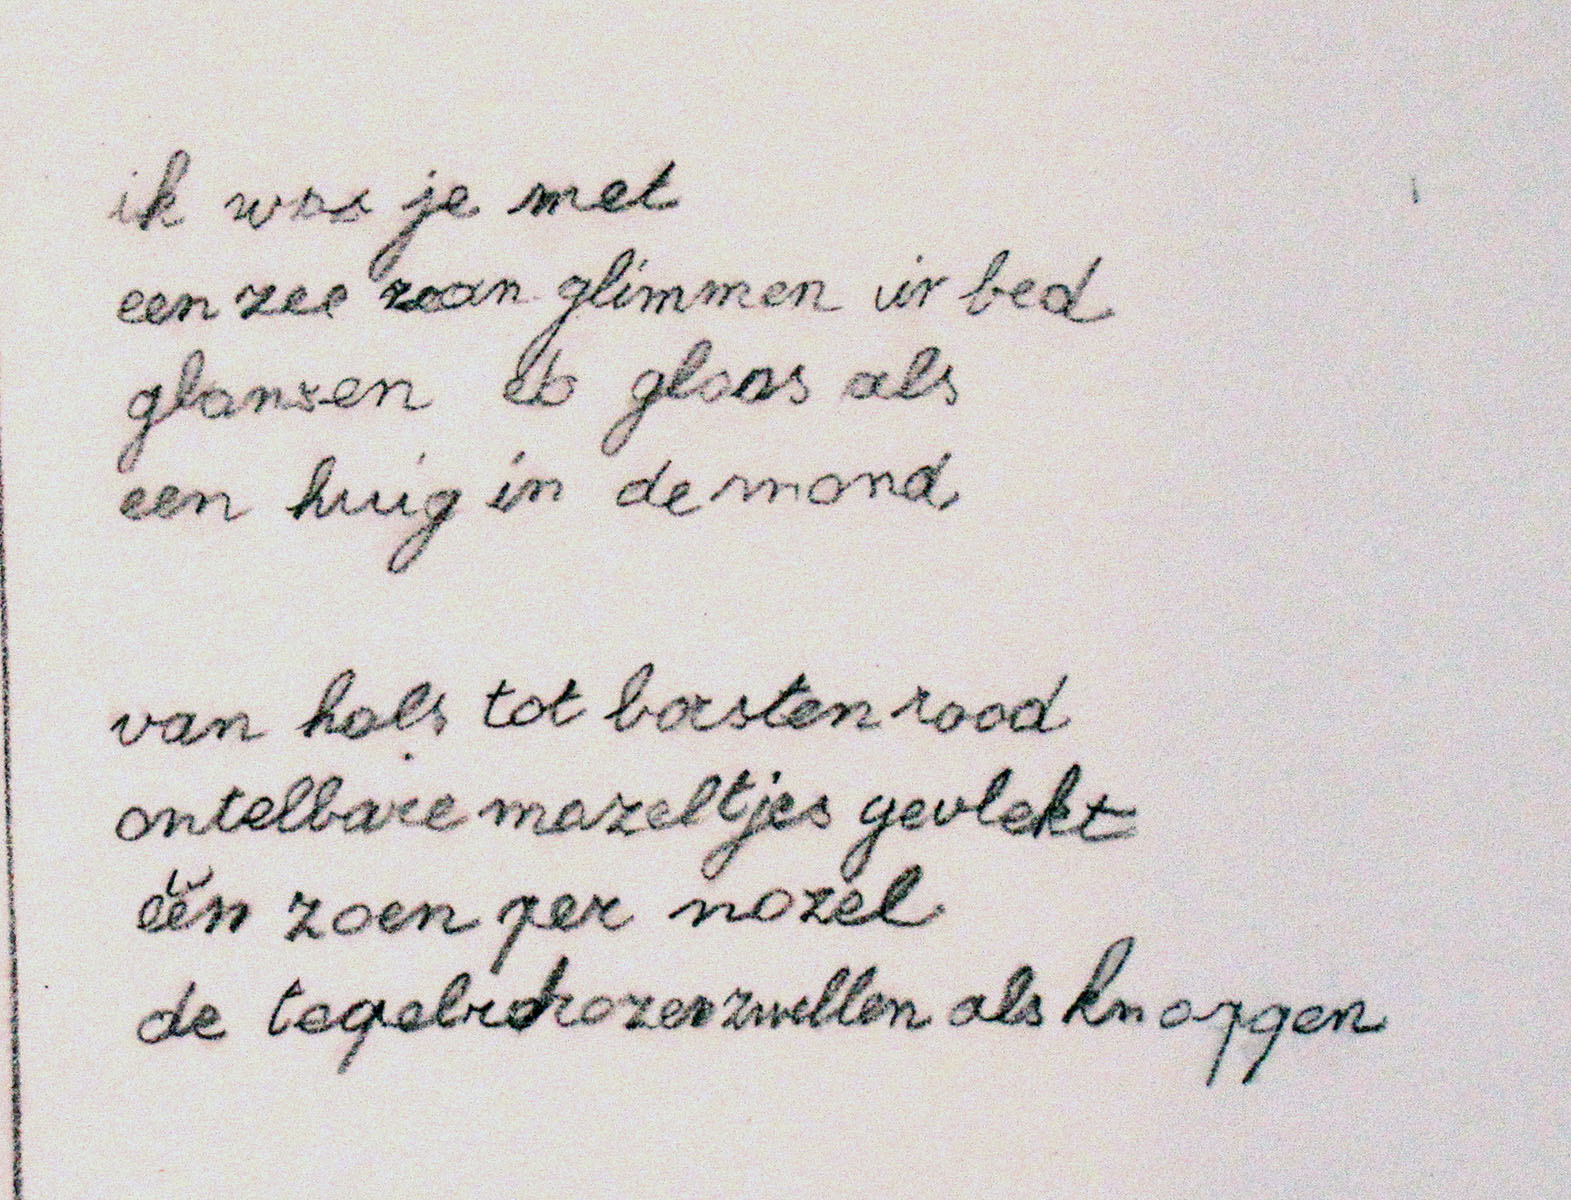 ik was je met
een zee zoan glimmen in bed
glanzen eb glans als
een huig in de mond
van hals tot borsten rood
ontelbare mazeltjes gevlekt
één zoen per nozel
de zwellen als knoppen